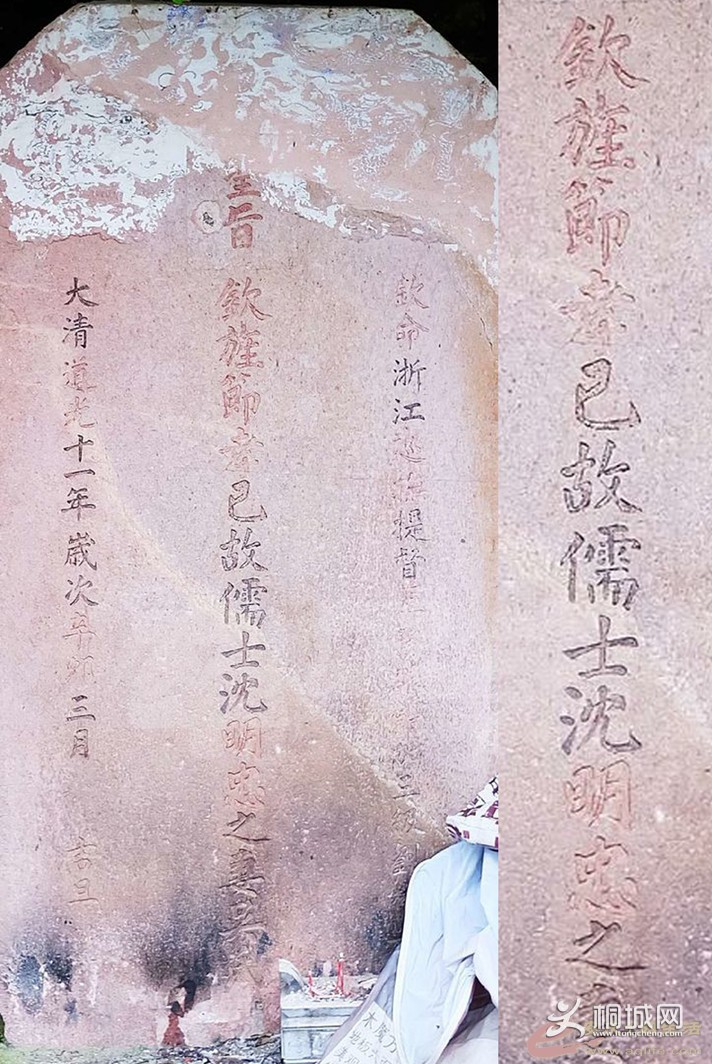 欽命浙江巡撫提督
三級
聖旨
欽旌節孝已故儒士沈明忠之妻
大清道光十一年歲次辛卯三月 吉旦
欽旌節孝已故儒士沈明忠之
桐城网
itongcheng.com